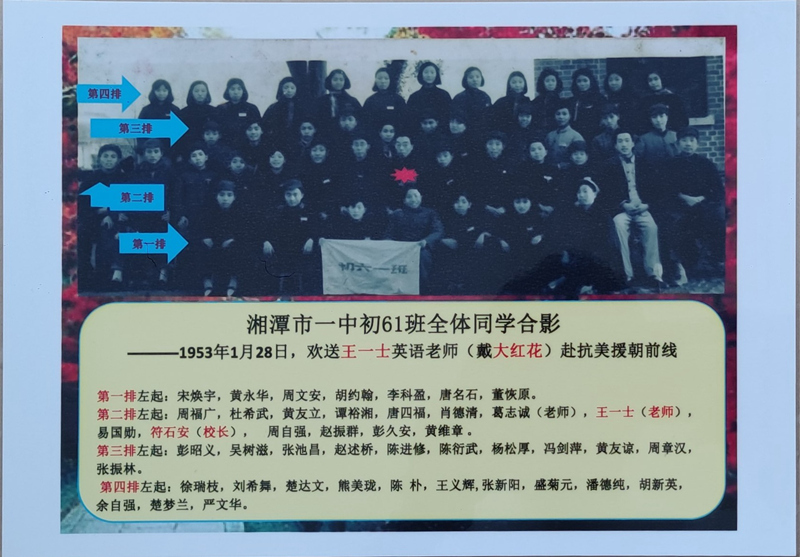 第四排
第三排
第二排
第一排
初六一班
湘潭市一中初61班全体同学合影
———1953年1月28日，欢送王一士英语老师（戴大红花）赴抗美援朝前线
第一排左起：宋焕宇，黄永华，周文安，胡约翰，李科盈，唐名石，董恢原。
第二排左起：周福广，杜希武，黄友立，谭裕湘，唐四福，肖德清，葛志诚（老师），王一士（老师），
易国勋，符石安（校长），  周自强，赵振群，彭久安，黄维章 。
第三排左起：彭昭义，吴树滋，张池昌，赵述桥，陈进修，陈衍武，杨松厚，冯剑萍，黄友谅，周章汉，
张振林。
第四排左起：徐瑞枝，刘希舞，楚达文，熊美珑，陈 朴，王义辉,张新阳，盛菊元，潘德纯，胡新英，
余自强，楚梦兰，严文华。